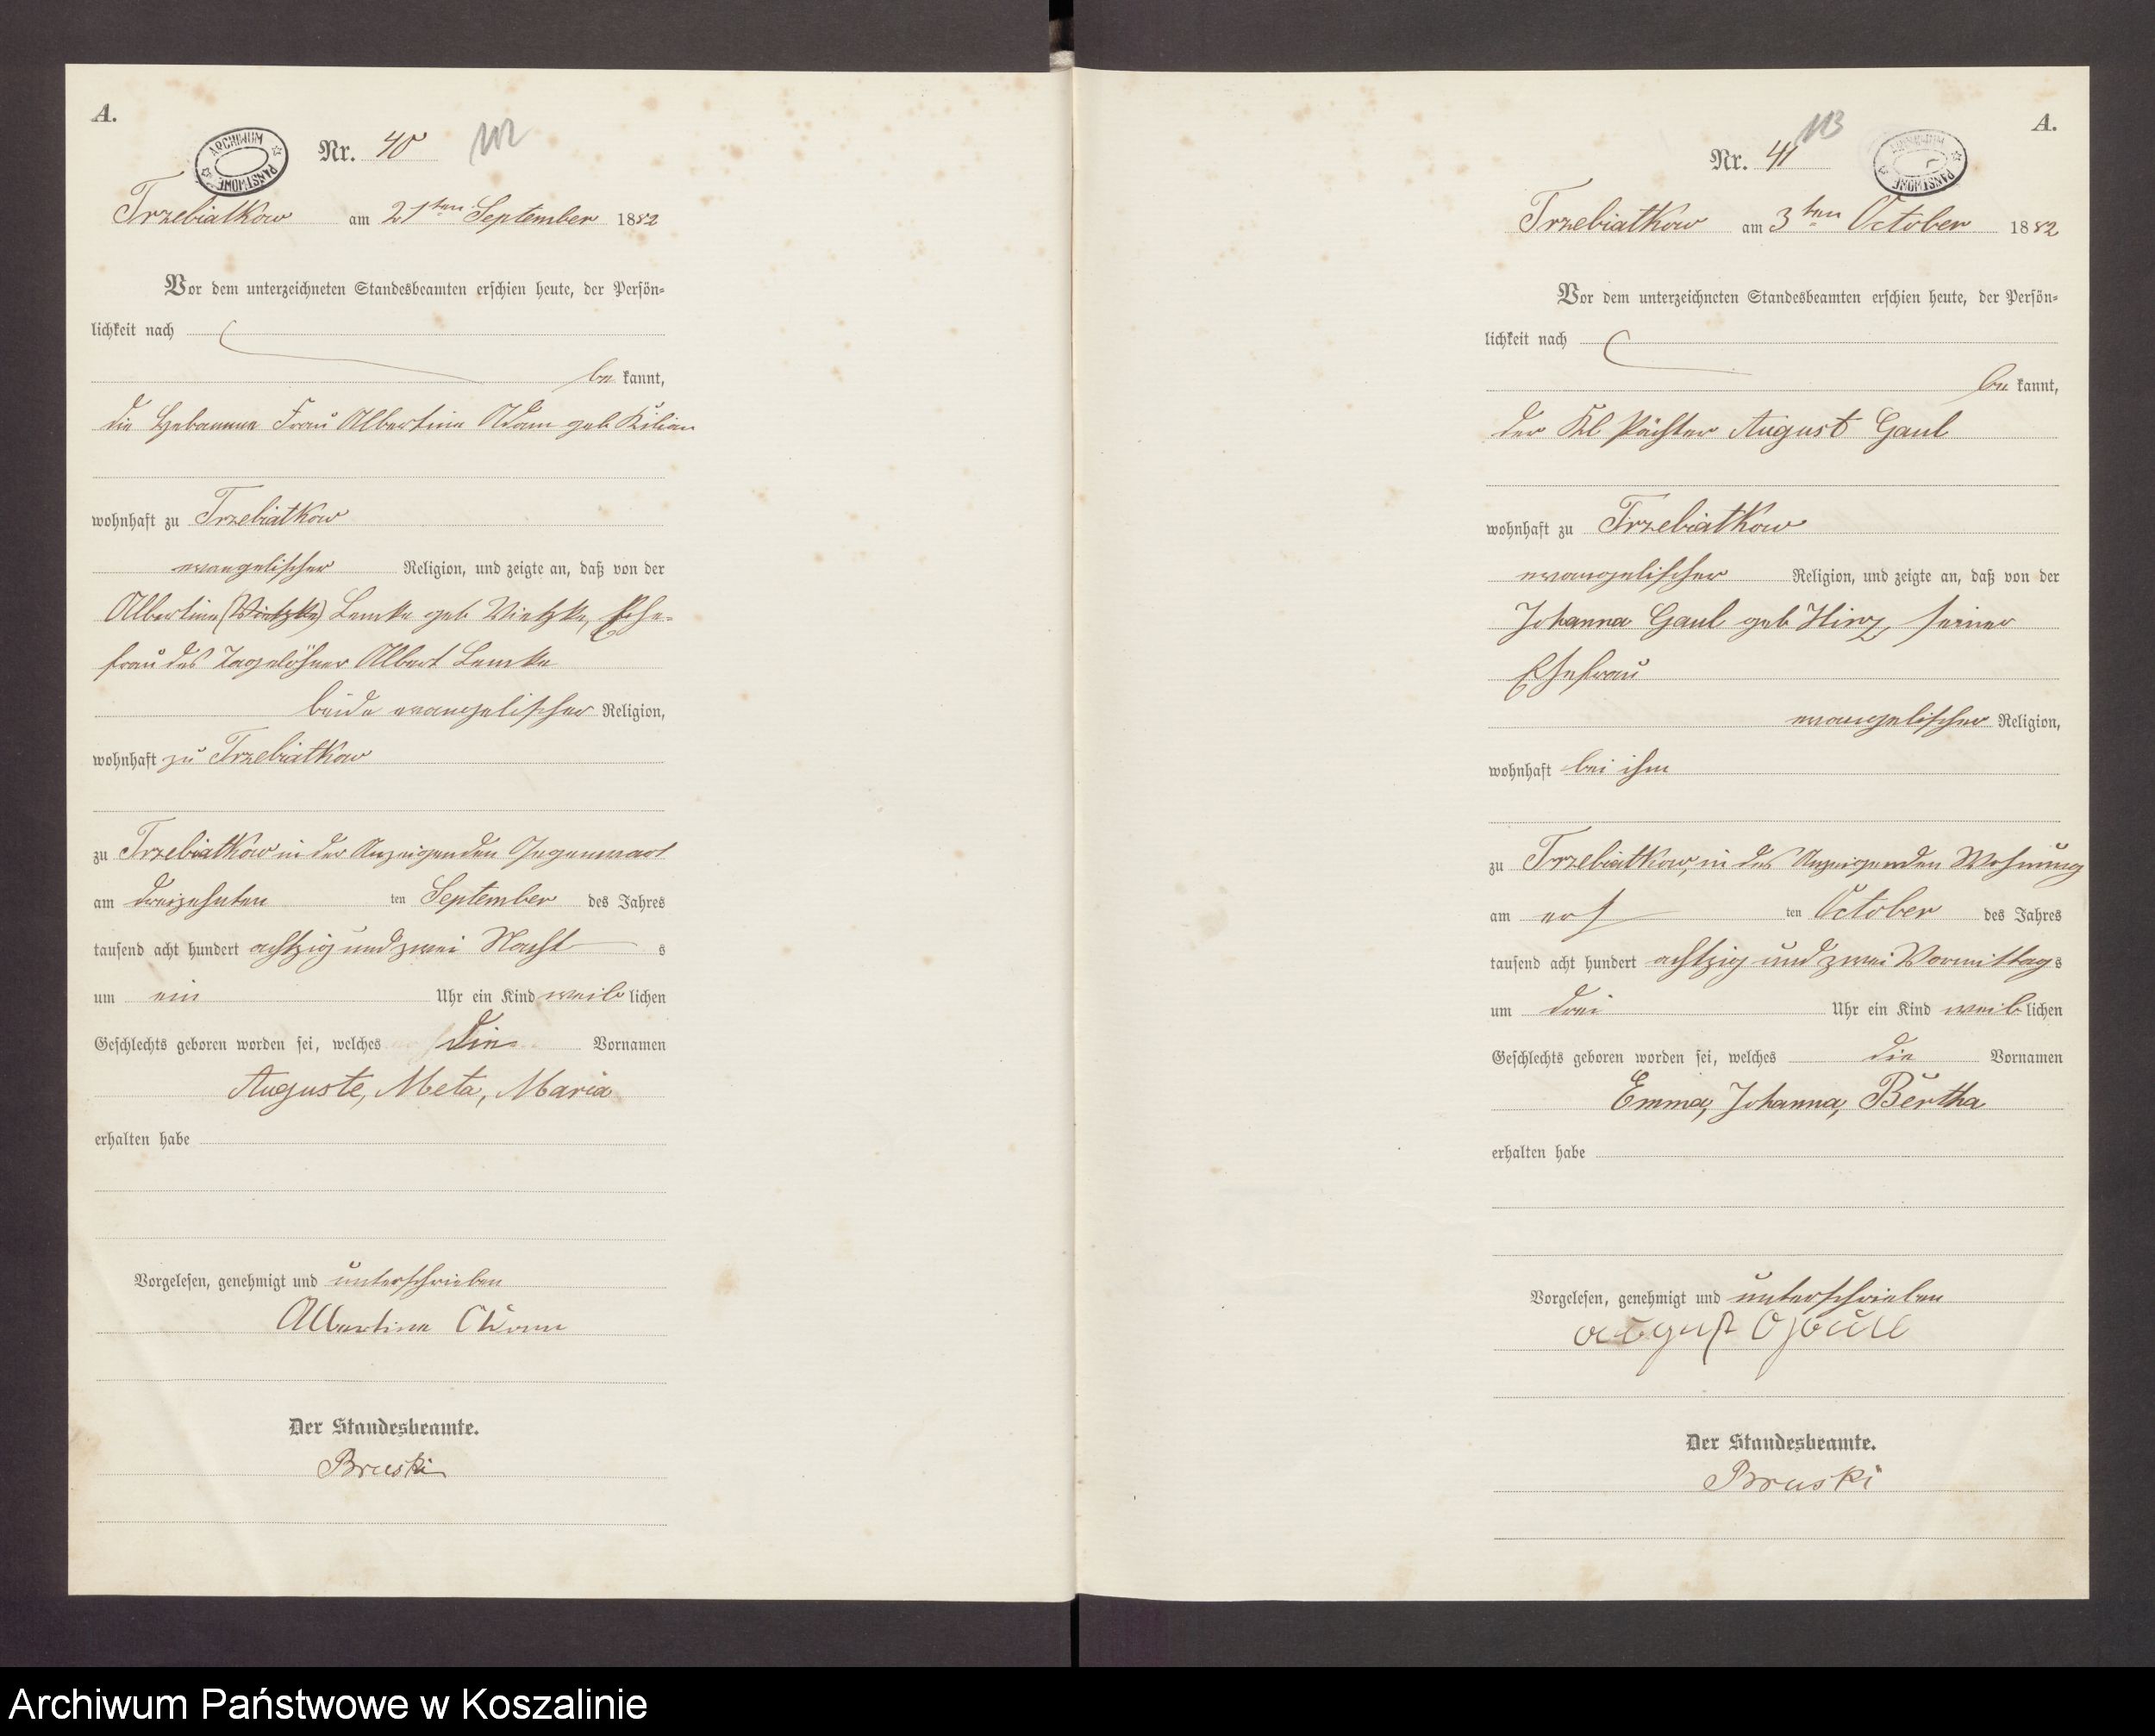 A.
ARCHIWUM PAŃSTWOWE
Nr. 40
112
Trzebiatkow am 21ten September 1882
Vor dem unterzeichneten Standesbeamten erschien heute, der Persön-
lichkeit nach
be kannt,
die Hebamme Frau Albertine Adam geb Kilian
wohnhaft zu Trzebiatkow
evangelischer Religion, und zeigte an, daß von der
Albertine (Vietzke) Lemke geb Vietzke, Ehe-
frau des Tagelöhner Albert Lemke
beide evangelischer Religion,
wohnhaft zu Trzebiatkow
zu Trzebiatkow in der Anzeigenden Gegenwart
am dreizehnten ten September des Jahres
tausend acht hundert achtzig und zwei Nacht s
um ein Uhr ein Kind weib lichen
Geschlechts geboren worden sei, welches die Vornamen
Auguste, Meta, Maria
erhalten habe
Vorgelesen, genehmigt und unterschrieben
Albertine Adam
Der Standesbeamte.
Bruski
A.
ARCHIWUM PAŃSTWOWE
Nr. 41
113
Trzebiatkow am 3ten October 1882
Vor dem unterzeichneten Standesbeamten erschien heute, der Persön-
lichkeit nach
be kannt,
der Kl Pächter August Gaul
wohnhaft zu Trzebiatkow
evangelischer Religion, und zeigte an, daß von der
Johanna Gaul geb Hinz, seiner
Ehefrau
evangelischer Religion,
wohnhaft bei ihm
zu Trzebiatkow, in des Anzeigenden Wohnung
am ers ten October des Jahres
tausend acht hundert achtzig und zwei Vormittag s
um drei Uhr ein Kind weib lichen
Geschlechts geboren worden sei, welches die Vornamen
Emma, Johanna, Bertha
erhalten habe
Vorgelesen, genehmigt und unterschrieben
August Gaul
Der Standesbeamte.
Bruski
Archiwum Państwowe w Koszalinie